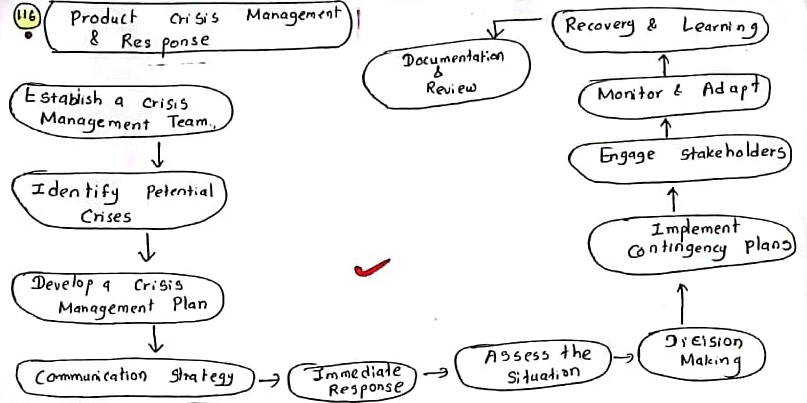 116
Product Crisis Management
& Response
Establish a Crisis
Management Team.
Identify Petential
Crises
Develop a Crisis
Management Plan
Communication Strategy
Immediate
Response
Assess the
Situation
Dicision
Making
Implement
Contingency plans
Engage Stakeholders
Monitor & Adapt
Recovery & Learning
Documentation
&
Review